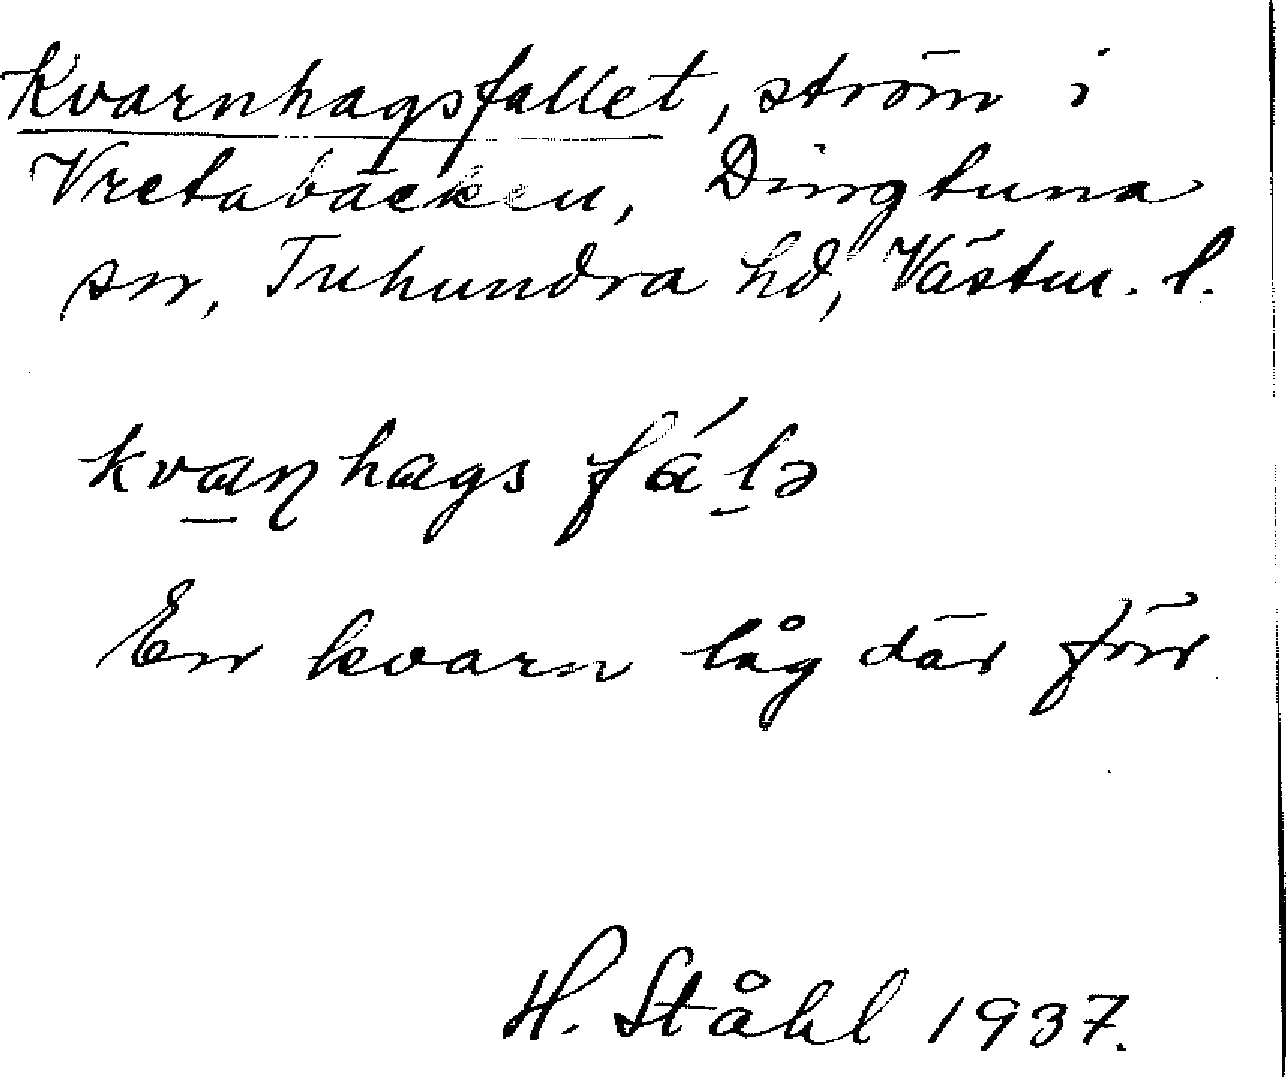 Kvarnhagsfallet, ström i
Vretabäcken, Dingtuna
sn, Tuhundra hd, Västm. l.
kvaɳhags fálə
En kvarn låg där förr
H. Ståhl 1937.